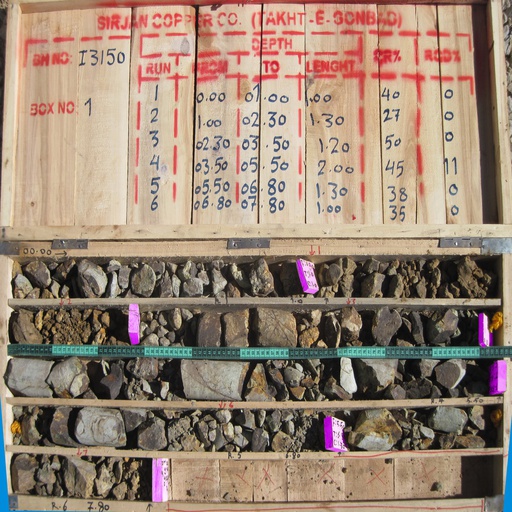 SIRJAN COPPER CO. (TAKHT-E-GONBAD)
BH NO: I3150
DEPTH
RUN FROM TO LENGHT CR% RQD%
BOX NO: 1
1 0.00 01.00 1.00 40 0
2 1.00 02.30 1.30 27 0
3 02.30 03.50 1.20 50 0
4 03.50 05.50 2.00 45 11
5 05.50 06.80 1.30 38 0
6 06.80 07.80 1.00 35 0
00.00 →
R.6 7.80